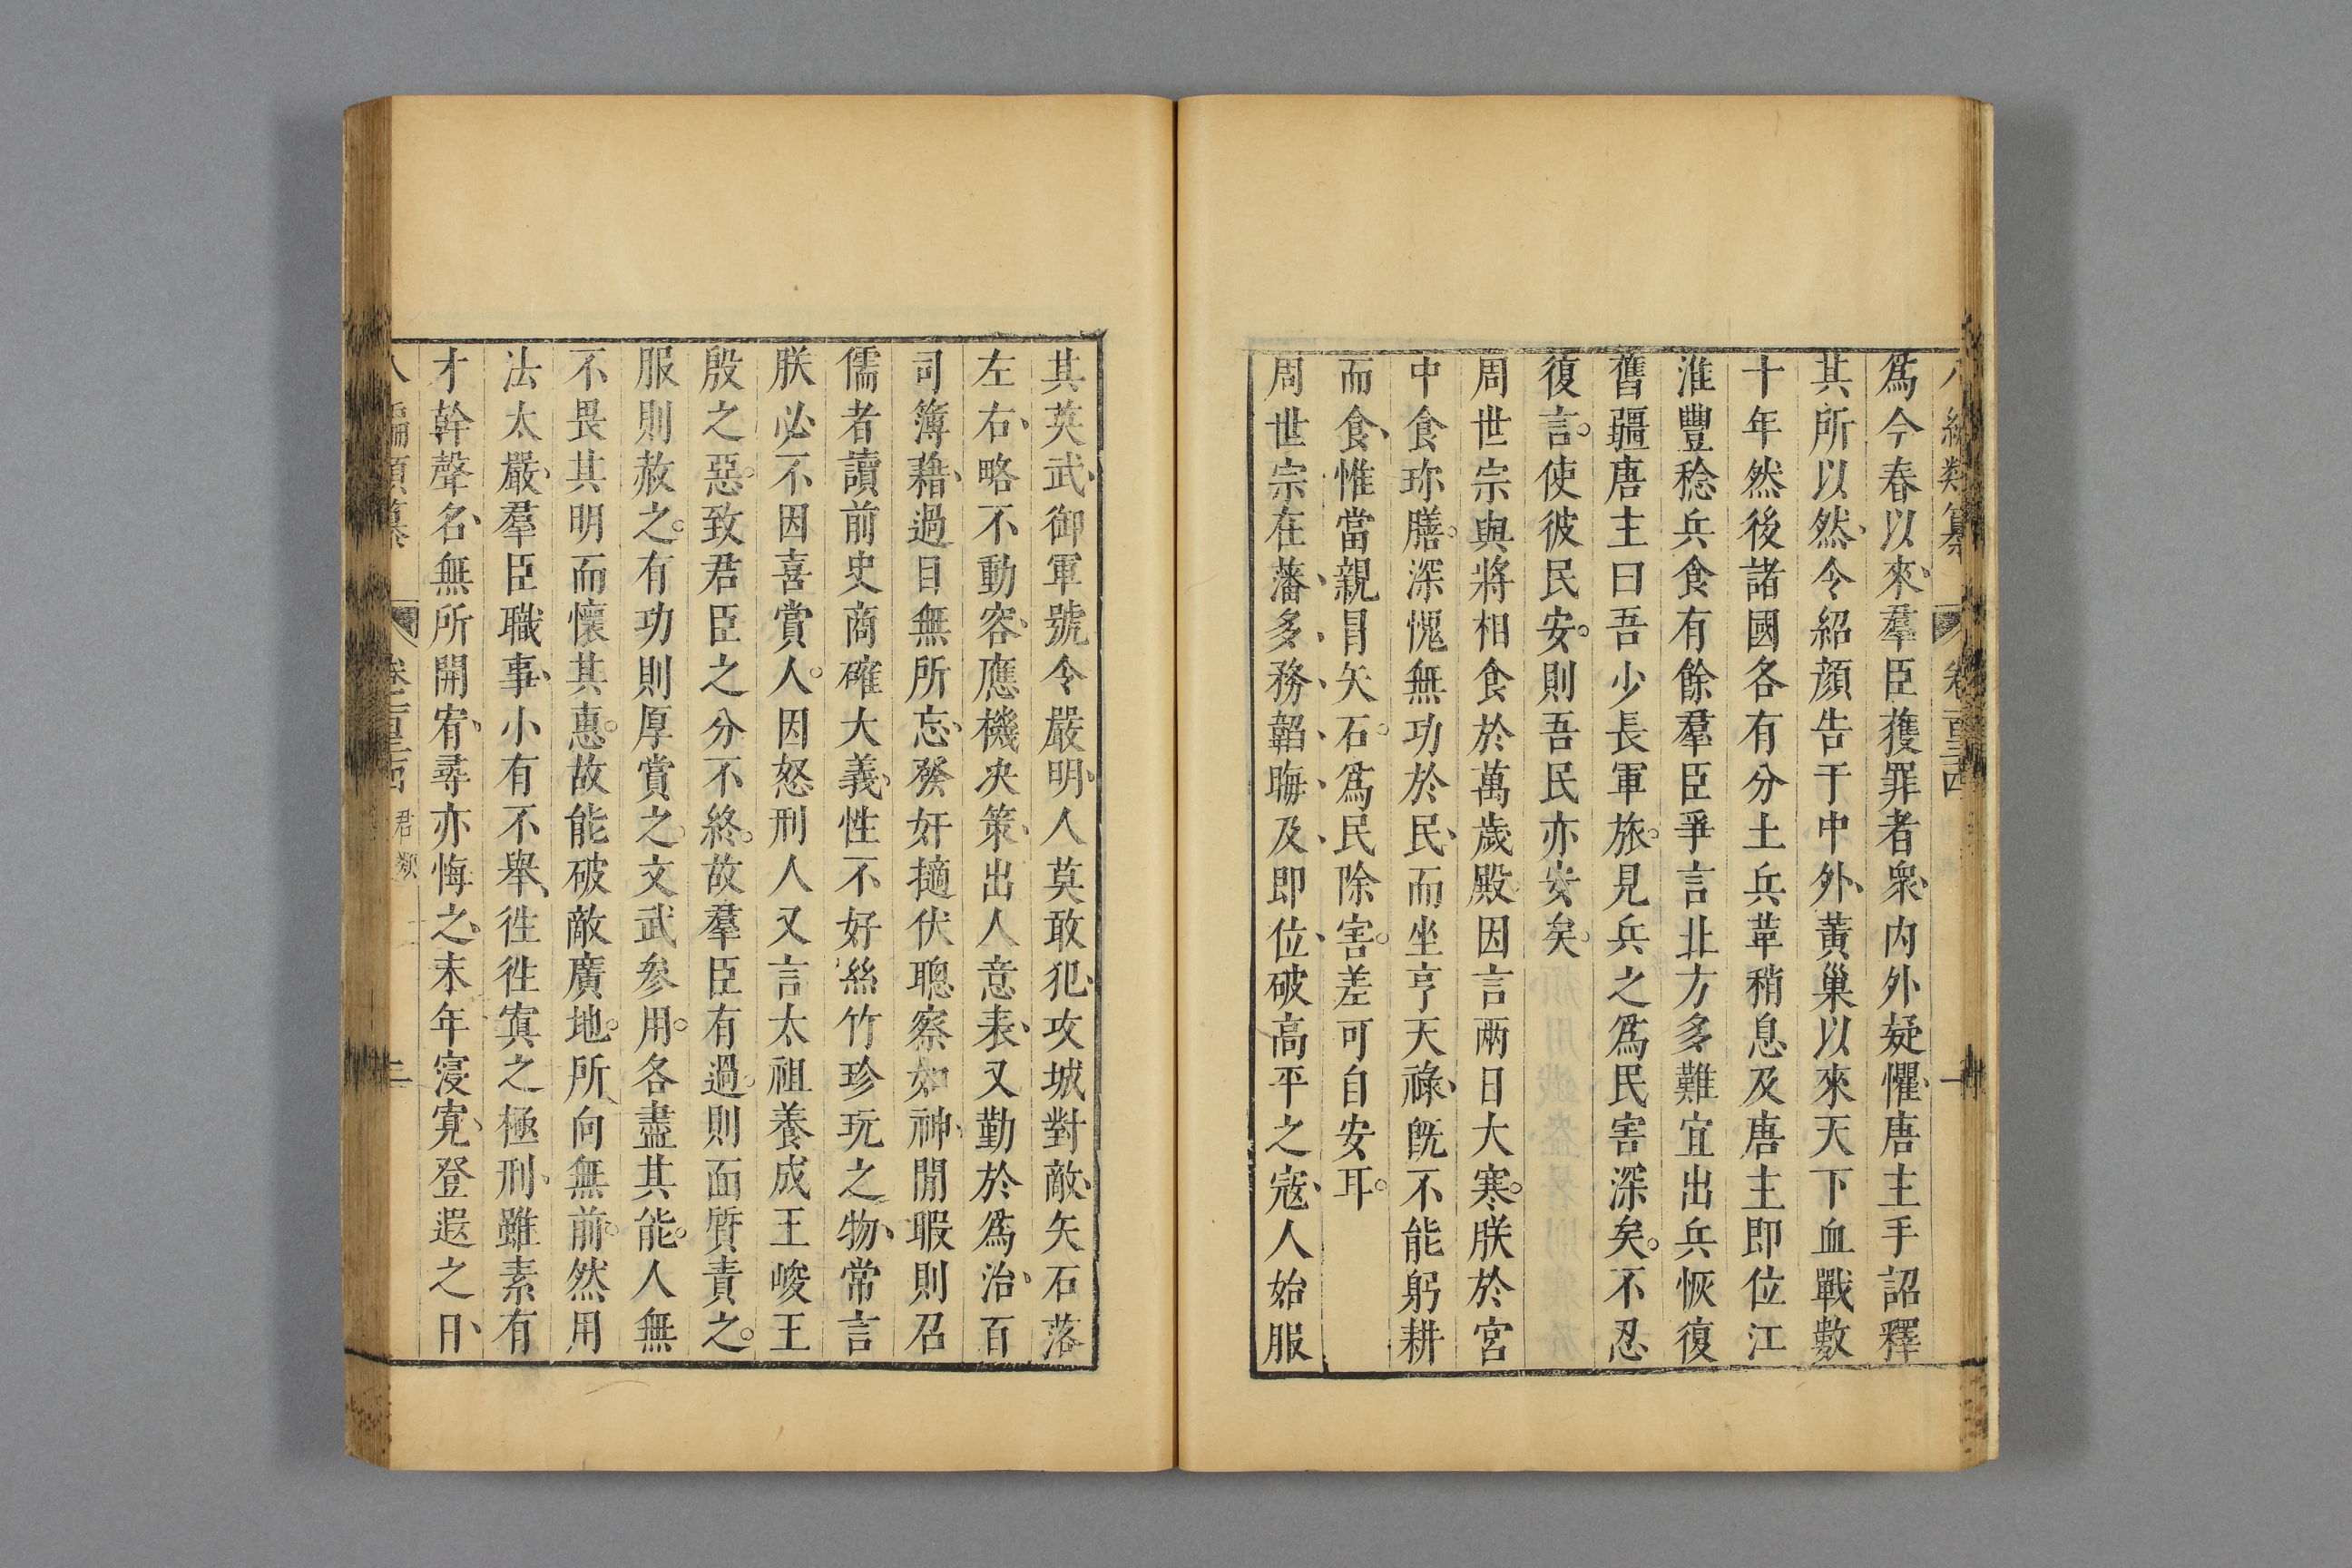 爲今春以來羣臣獲罪者衆内外疑懼唐主手詔釋
其所以然令紹顔告于中外黃巢以來天下血戰數
十年然後諸國各有分土兵革稍息及唐主即位江
淮豐稔兵食有餘羣臣爭言北方多難宜出兵恢復
舊疆唐主曰吾少長軍旅見兵之爲民害深矣不忍
復言使彼民安則吾民亦安矣
周世宗與將相食於萬歲殿因言兩日大寒朕於宮
中食珎膳深愧無功於民而坐亨天祿既不能躬耕
而食惟當親冒矢石爲民除害差可自安耳
周世宗在藩多務韜晦及即位破高平之寇人始服
其英武御軍號令嚴明人莫敢犯攻城對敵矢石落
左右略不動容應機决策出人意表又勤於爲治百
司簿藉過目無所忘發奸擿伏聰察如神閒暇則召
儒者讀前史商確大義性不好絲竹珍玩之物常言
朕必不因喜賞人因怒刑人又言太祖養成王峻王
殷之惡致君臣之分不終故羣臣有過則面質責之
服則赦之有功則厚賞之文武參用各盡其能人無
不畏其明而懷其惠故能破敵廣地所向無前然用
法太嚴羣臣職事小有不舉徃徃寘之極刑雖素有
才幹聲名無所開宥尋亦悔之末年寖寬登遐之日
君類
二